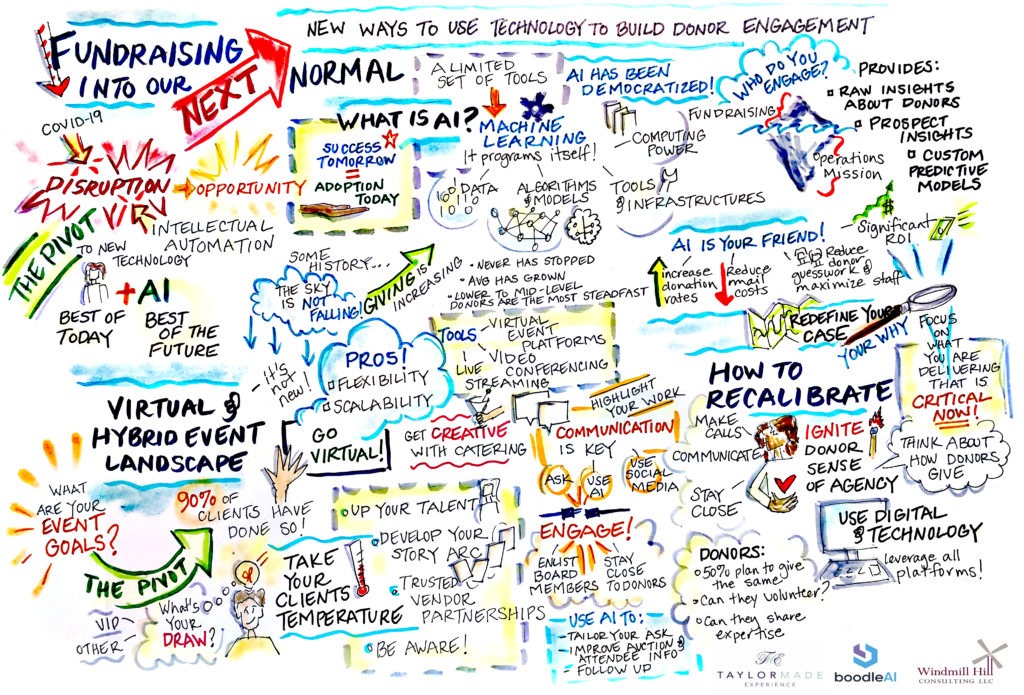 NEW WAYS TO USE TECHNOLOGY TO BUILD DONOR ENGAGEMENT
FUNDRAISING
INTO OUR
NEXT
NORMAL
COVID-19
DISRUPTION
OPPORTUNITY
THE PIVOT
INTELLECTUAL
AUTOMATION
TO NEW
TECHNOLOGY
+ AI
BEST OF
TODAY
BEST
OF THE
FUTURE
WHAT IS AI?
SUCCESS
TOMORROW
=
ADOPTION
TODAY
A LIMITED
SET OF TOOLS
MACHINE
LEARNING
It programs itself!
DATA
ALGORITHMS
& MODELS
TOOLS
& INFRASTRUCTURES
AI HAS BEEN
DEMOCRATIZED!
COMPUTING
POWER
WHO DO YOU
ENGAGE?
FUNDRAISING
Operations
Mission
PROVIDES:
RAW INSIGHTS
ABOUT DONORS
PROSPECT
INSIGHTS
CUSTOM
PREDICTIVE
MODELS
$
AI IS YOUR FRIEND!
Significant
ROI
increase
donation
rates
Reduce
mail
costs
Reduce
donor
guesswork &
maximize staff
SOME
HISTORY...
THE SKY
IS NOT
FALLING!
GIVING IS
INCREASING
- NEVER HAS STOPPED
- AVG HAS GROWN
- LOWER TO MID-LEVEL
DONORS ARE THE MOST STEADFAST
REDEFINE YOUR
CASE
YOUR WHY
FOCUS
ON
WHAT
YOU ARE
DELIVERING
THAT IS
CRITICAL
NOW!
THINK ABOUT
HOW DONORS
GIVE
VIRTUAL &
HYBRID EVENT
LANDSCAPE
- it's
not new!
PROS!
FLEXIBILITY
SCALABILITY
TOOLS
VIRTUAL
EVENT
PLATFORMS
VIDEO
CONFERENCING
LIVE
STREAMING
GO
VIRTUAL!
GET CREATIVE
WITH CATERING
90% OF
CLIENTS HAVE
DONE SO!
WHAT
ARE YOUR
EVENT
GOALS?
THE PIVOT
VIP
OTHER
What's
YOUR
DRAW?
TAKE
YOUR
CLIENTS
TEMPERATURE
UP YOUR TALENT
DEVELOP YOUR
STORY ARC
TRUSTED
VENDOR
PARTNERSHIPS
BE AWARE!
HIGHLIGHT
YOUR WORK
COMMUNICATION
IS KEY
ASK
USE
AI
USE
SOCIAL
MEDIA
ENGAGE!
ENLIST
BOARD
MEMBERS
STAY
CLOSE
TO DONORS
USE AI TO:
- TAILOR YOUR ASK
- IMPROVE AUCTION &
ATTENDEE INFO
- FOLLOW UP
HOW TO
RECALIBRATE
MAKE
CALLS
COMMUNICATE
STAY
CLOSE
IGNITE
DONOR
SENSE
OF AGENCY
USE DIGITAL
& TECHNOLOGY
leverage all
platforms!
DONORS:
50% plan to give
the same
Can they volunteer?
Can they share
expertise
TAYLORMADE
EXPERIENCE
boodleAI
Windmill Hill
CONSULTING LLC